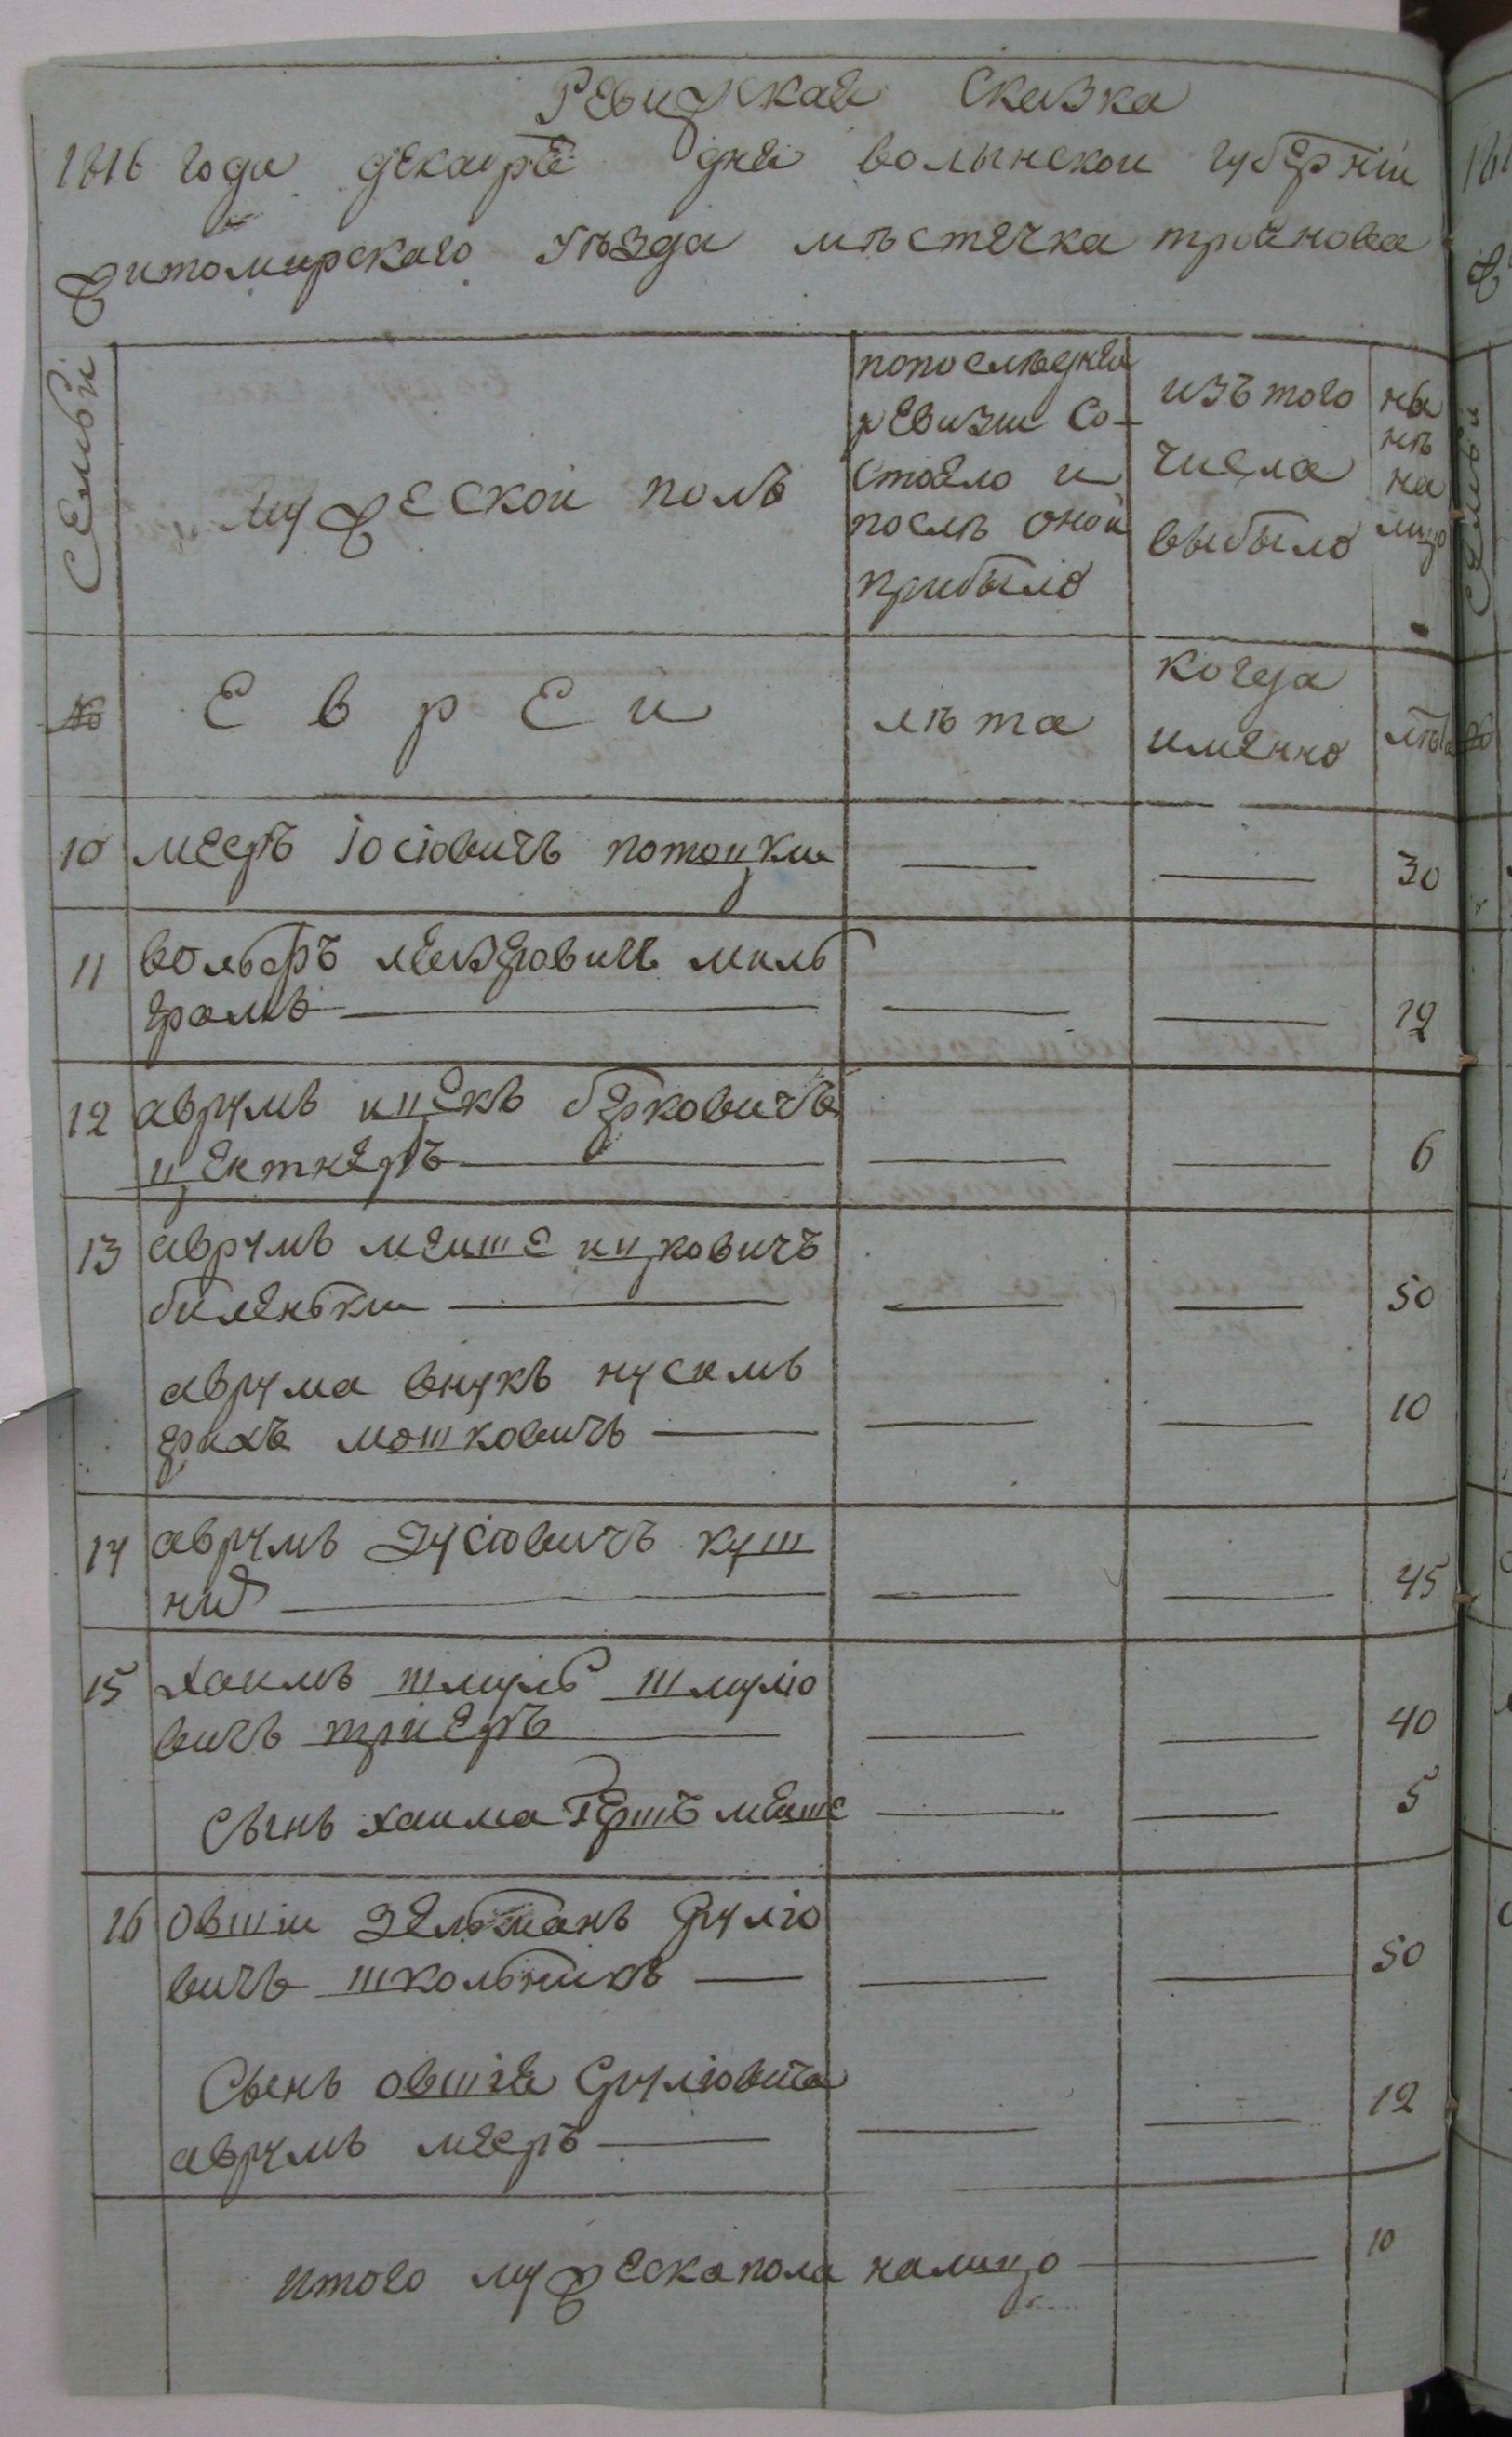 Ревизская Сказка
1816 года декабря дня волынской губерніи
житомирскаго уѣзда мѣстечка троянова
Семьи
мужеской полъ
попоследнеи
ревизіи Со-
стояло и
послѣ оной
прибыло
изъ того
числа
выбыло
ны
нѣ
на
лицо
№
Евреи
лѣта
когда
именно
лѣта
10 меэръ іосіовичъ потоцки — — 30
11 вольфъ лейзеровичъ миль
громъ — — — 12
12 аврумъ ицекъ берковичъ
центнеръ — — — 6
13 аврумъ мейше ицковичъ
биленьки — — — 50
аврума внукъ нусимъ
ерихъ мошковичъ — — — 10
14 аврумъ зусіовичъ куш
нир — — — 45
15 хаимъ шмуль шмуліо
вичъ триеръ — — — 40
Сынъ хаима Гершъ мейше — — 5
16 овшіи зельманъ Сруліо
вичъ школьникъ — — — 50
Сынъ овшія Сруліовича
аврумъ мееръ — — — 12
итого мужеска пола налицо — 10